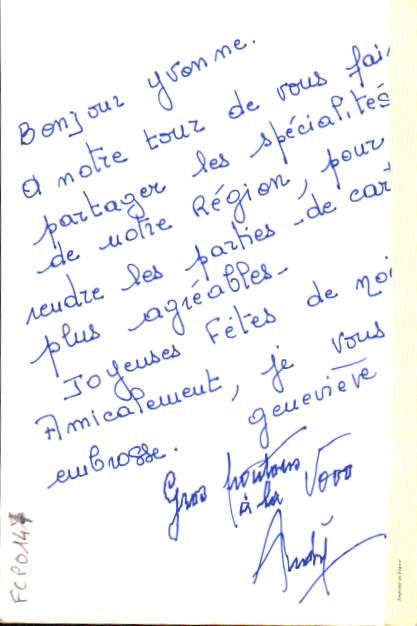 Bonjour Yvonne.
a notre tour de vous fai
partager les spécialités
de notre Région, pour
rendre les parties de car
plus agréables.
Joyeuses Fêtes de noi
Amicalement, je vous
embrasse. geneviève
Gros
à la Vovo
André
FCP0147
Imprimé en France